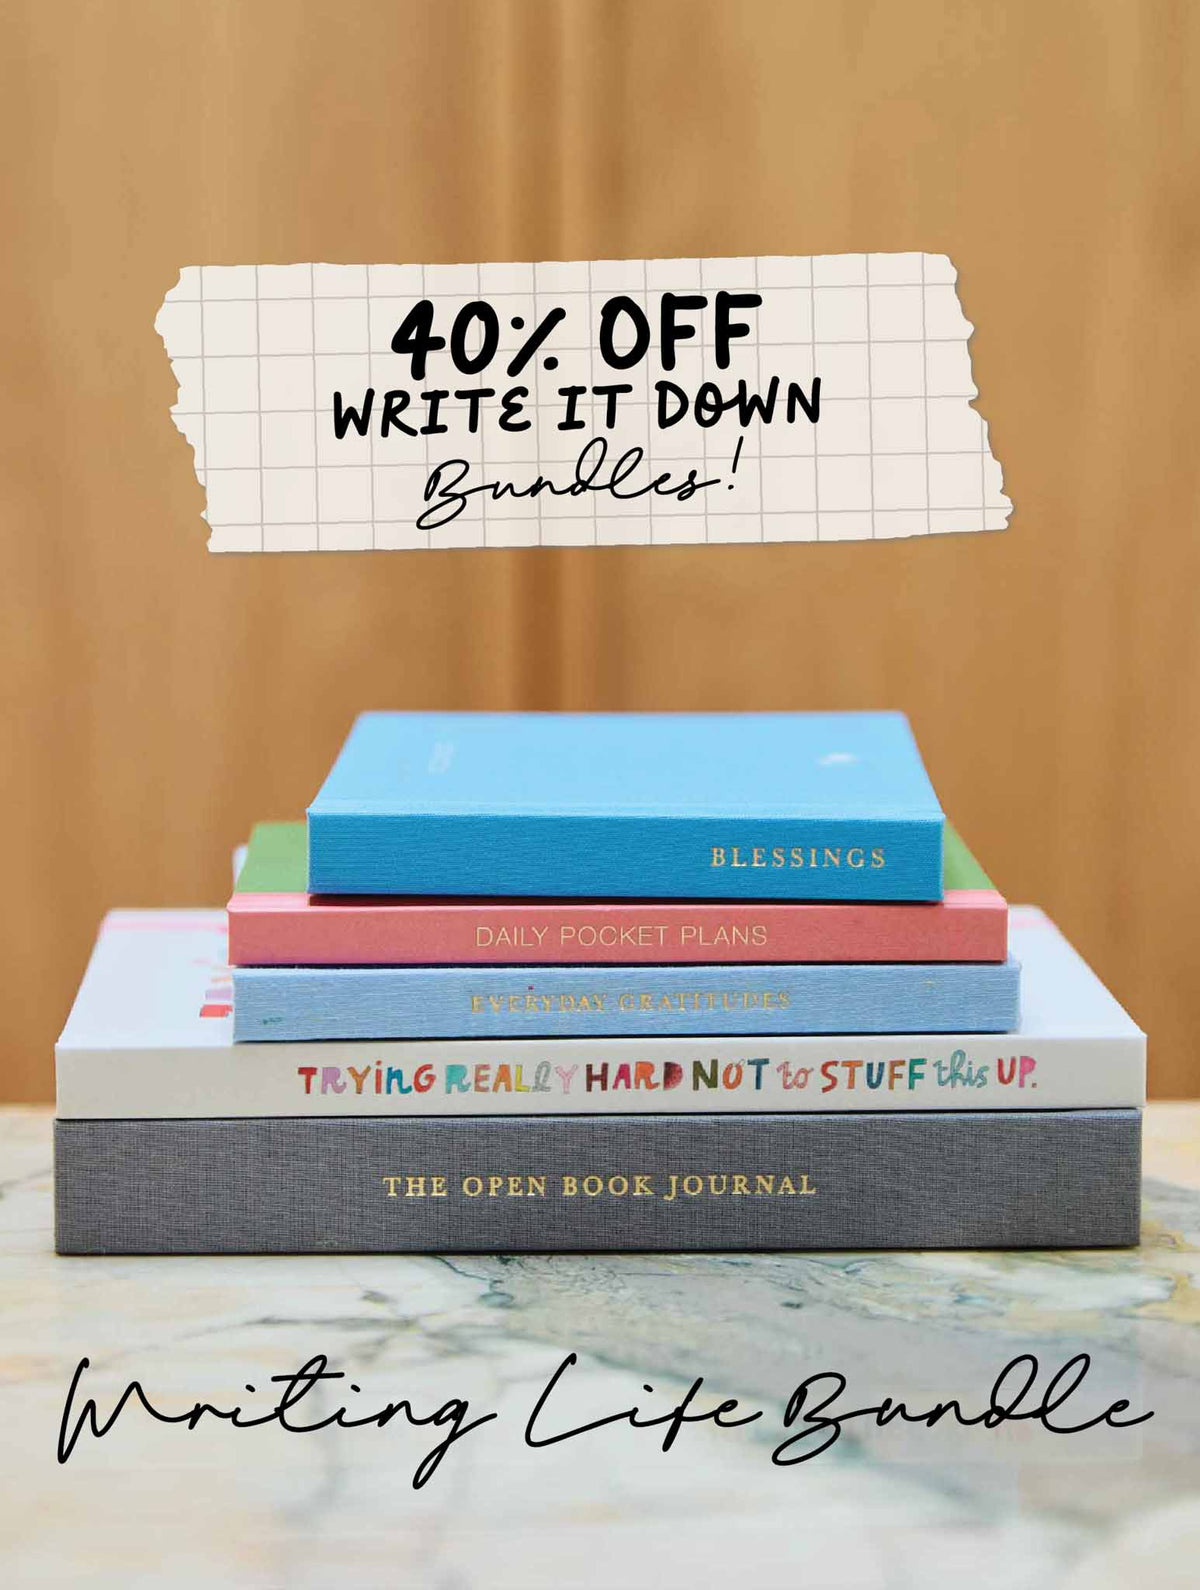 40% OFF
WRITE IT DOWN
Bundles!
BLESSINGS
DAILY POCKET PLANS
EVERYDAY GRATITUDES
TRYING REALLY HARD NOT to STUFF this UP.
THE OPEN BOOK JOURNAL
Writing Life Bundle